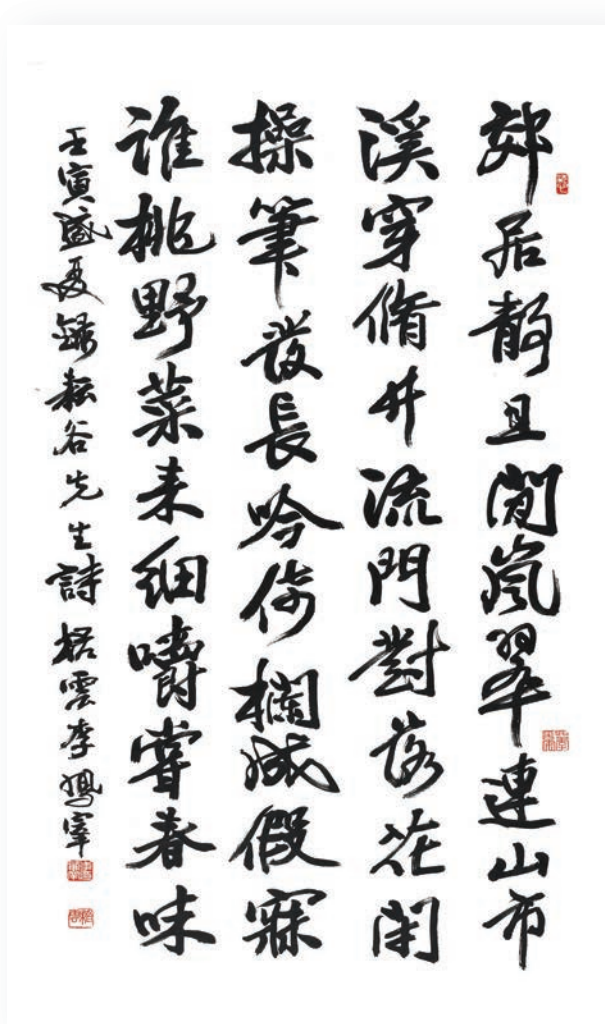 郊居静且閒嵐翠連山市
溪穿脩井流門對落花閑
操筆發長吟倚欄成假寐
誰挑野菜来細嚼嘗春味
壬寅盛夏錄耘谷先生詩栝雲李鳳宰